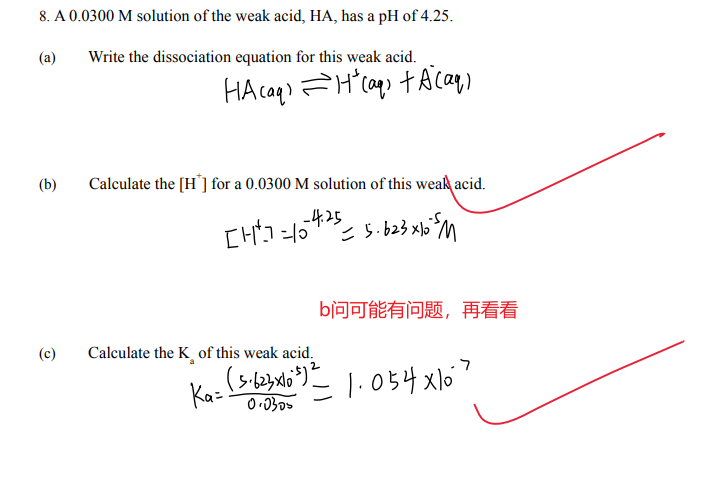 8. A 0.0300 M solution of the weak acid, HA, has a pH of 4.25.
(a) Write the dissociation equation for this weak acid.
HA(aq) ⇌ H⁺(aq) + A⁻(aq)
(b) Calculate the [H⁺] for a 0.0300 M solution of this weak acid.
[H⁺] = 10^-4.25 = 5.623 × 10^-5 M
b问可能有问题，再看看
(c) Calculate the Kₐ of this weak acid.
Ka = (5.623×10^-5)^2 / 0.0300 = 1.054 × 10^-7